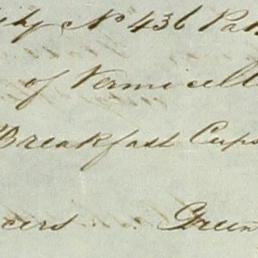 No 436 Pat
of Vermicell
Breakfast Cups
cers .. Green